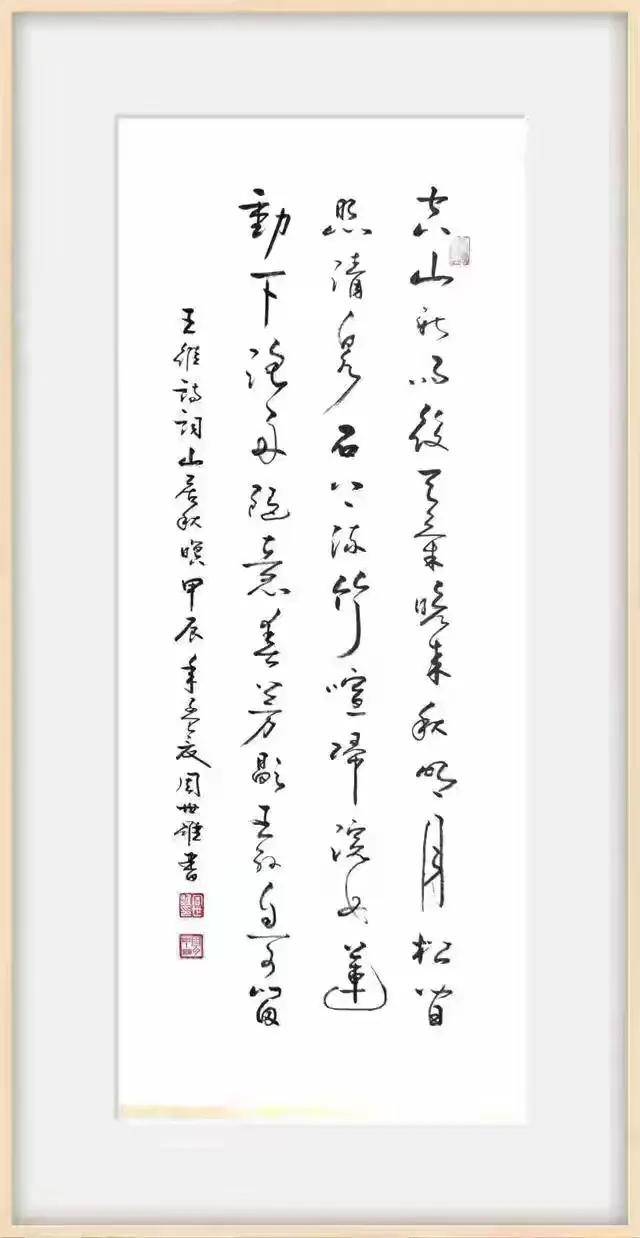 空山新雨後天氣晚來秋明月松間
照清泉石上流竹喧歸浣女蓮
動下漁舟隨意春芳歇王孫自可留
王維詩詞山居秋暝甲辰年夏周世雄書